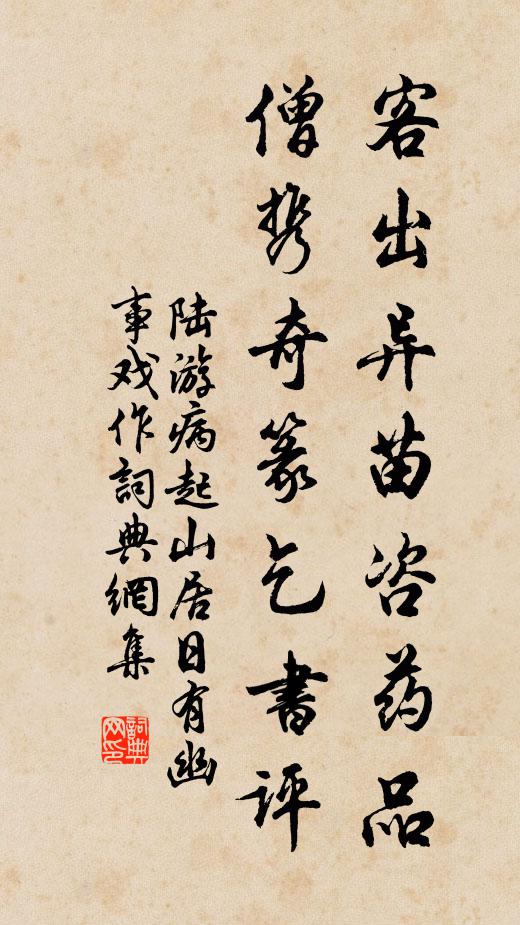 客出异苗咨药品
僧携奇篆乞書评
陆游病起山居日有幽
事戏作詞典網集
詞典
网印